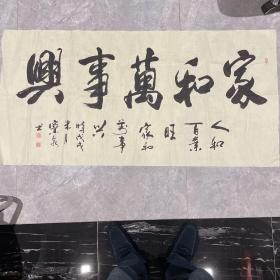 家和萬事興
人和
百業
旺
家和
萬事
興
時戊戌